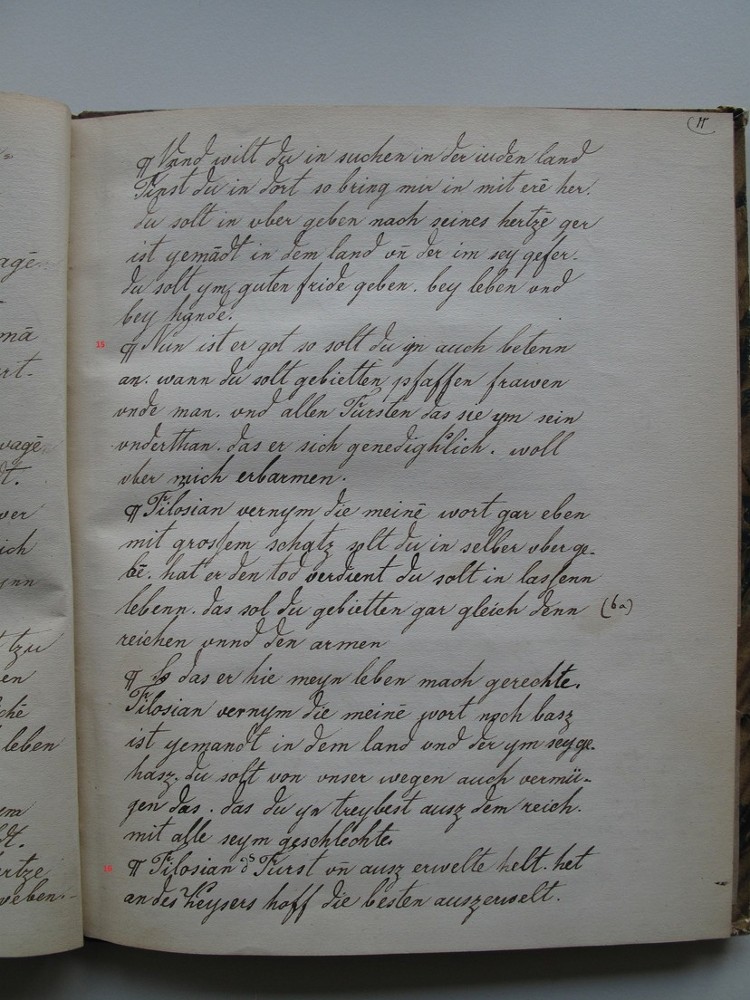 11
¶ Vnnd wilt du in suchen in der iuden land
Finst du in dort so bring mir in mit erē her.
du solt in vber geben nach seines hertzē ger
ist yemādt in dem land vn̄ der im sey gefer.
du solt ym guten fride geben. bey leben vnd
bey hande.
15
¶ Nun ist er got so solt du yn auch betenn
an. wann du solt gebietten pfaffen frawen
vnde man. vnd allen Fursten das sie ym sein
vnderthan. das er sich genedighlich. woll
vber mich erbarmen.
¶ Filosian vernym die meinē wort gar eben
mit grossem schatz solt du in selber vber ge-
bē. hat er den tod verdient du solt in lassenn
lebenn. das sol du gebietten gar gleich denn (6a)
reichen vnnd den armen
¶ So das er hie meyn leben mach gerechte.
Filosian vernym die meinē wort noch basz
ist yemandt in dem land vnd der ym sey ge-
hasz. du solt von vnser wegen auch vermü-
gen das. das du yn treybest ausz dem reich.
mit alle seym geschlechte.
¶ Filosian ds Furst vn̄ ausz erwelte helt. het
an des Keysers hoff die besten auszerwelt.
agē
mā
rt-
wagē
dt.
ver
ich
ynn
tzu
en
chē
leben
em
dt.
ertze
weben.